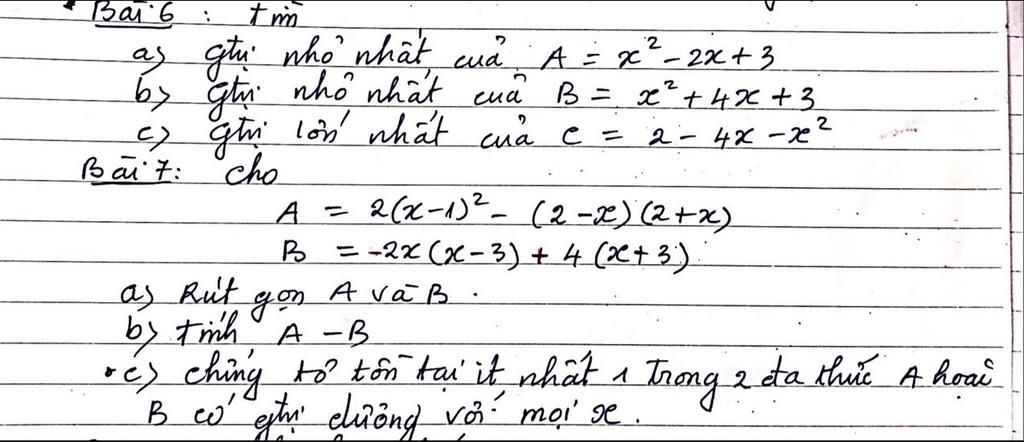 Bài 6 : tìm
a) gtrị nhỏ nhất của A = x² - 2x + 3
b) gtrị nhỏ nhất của B = x² + 4x + 3
c) gtrị lớn nhất của C = 2 - 4x - x²
Bài 7: cho
A = 2(x-1)² - (2-x)(2+x)
B = -2x(x-3) + 4(x+3)
a) Rút gọn A và B.
b) tính A - B
c) chứng tỏ tồn tại ít nhất 1 trong 2 đa thức A hoặc
B có gtrị dương với mọi x.